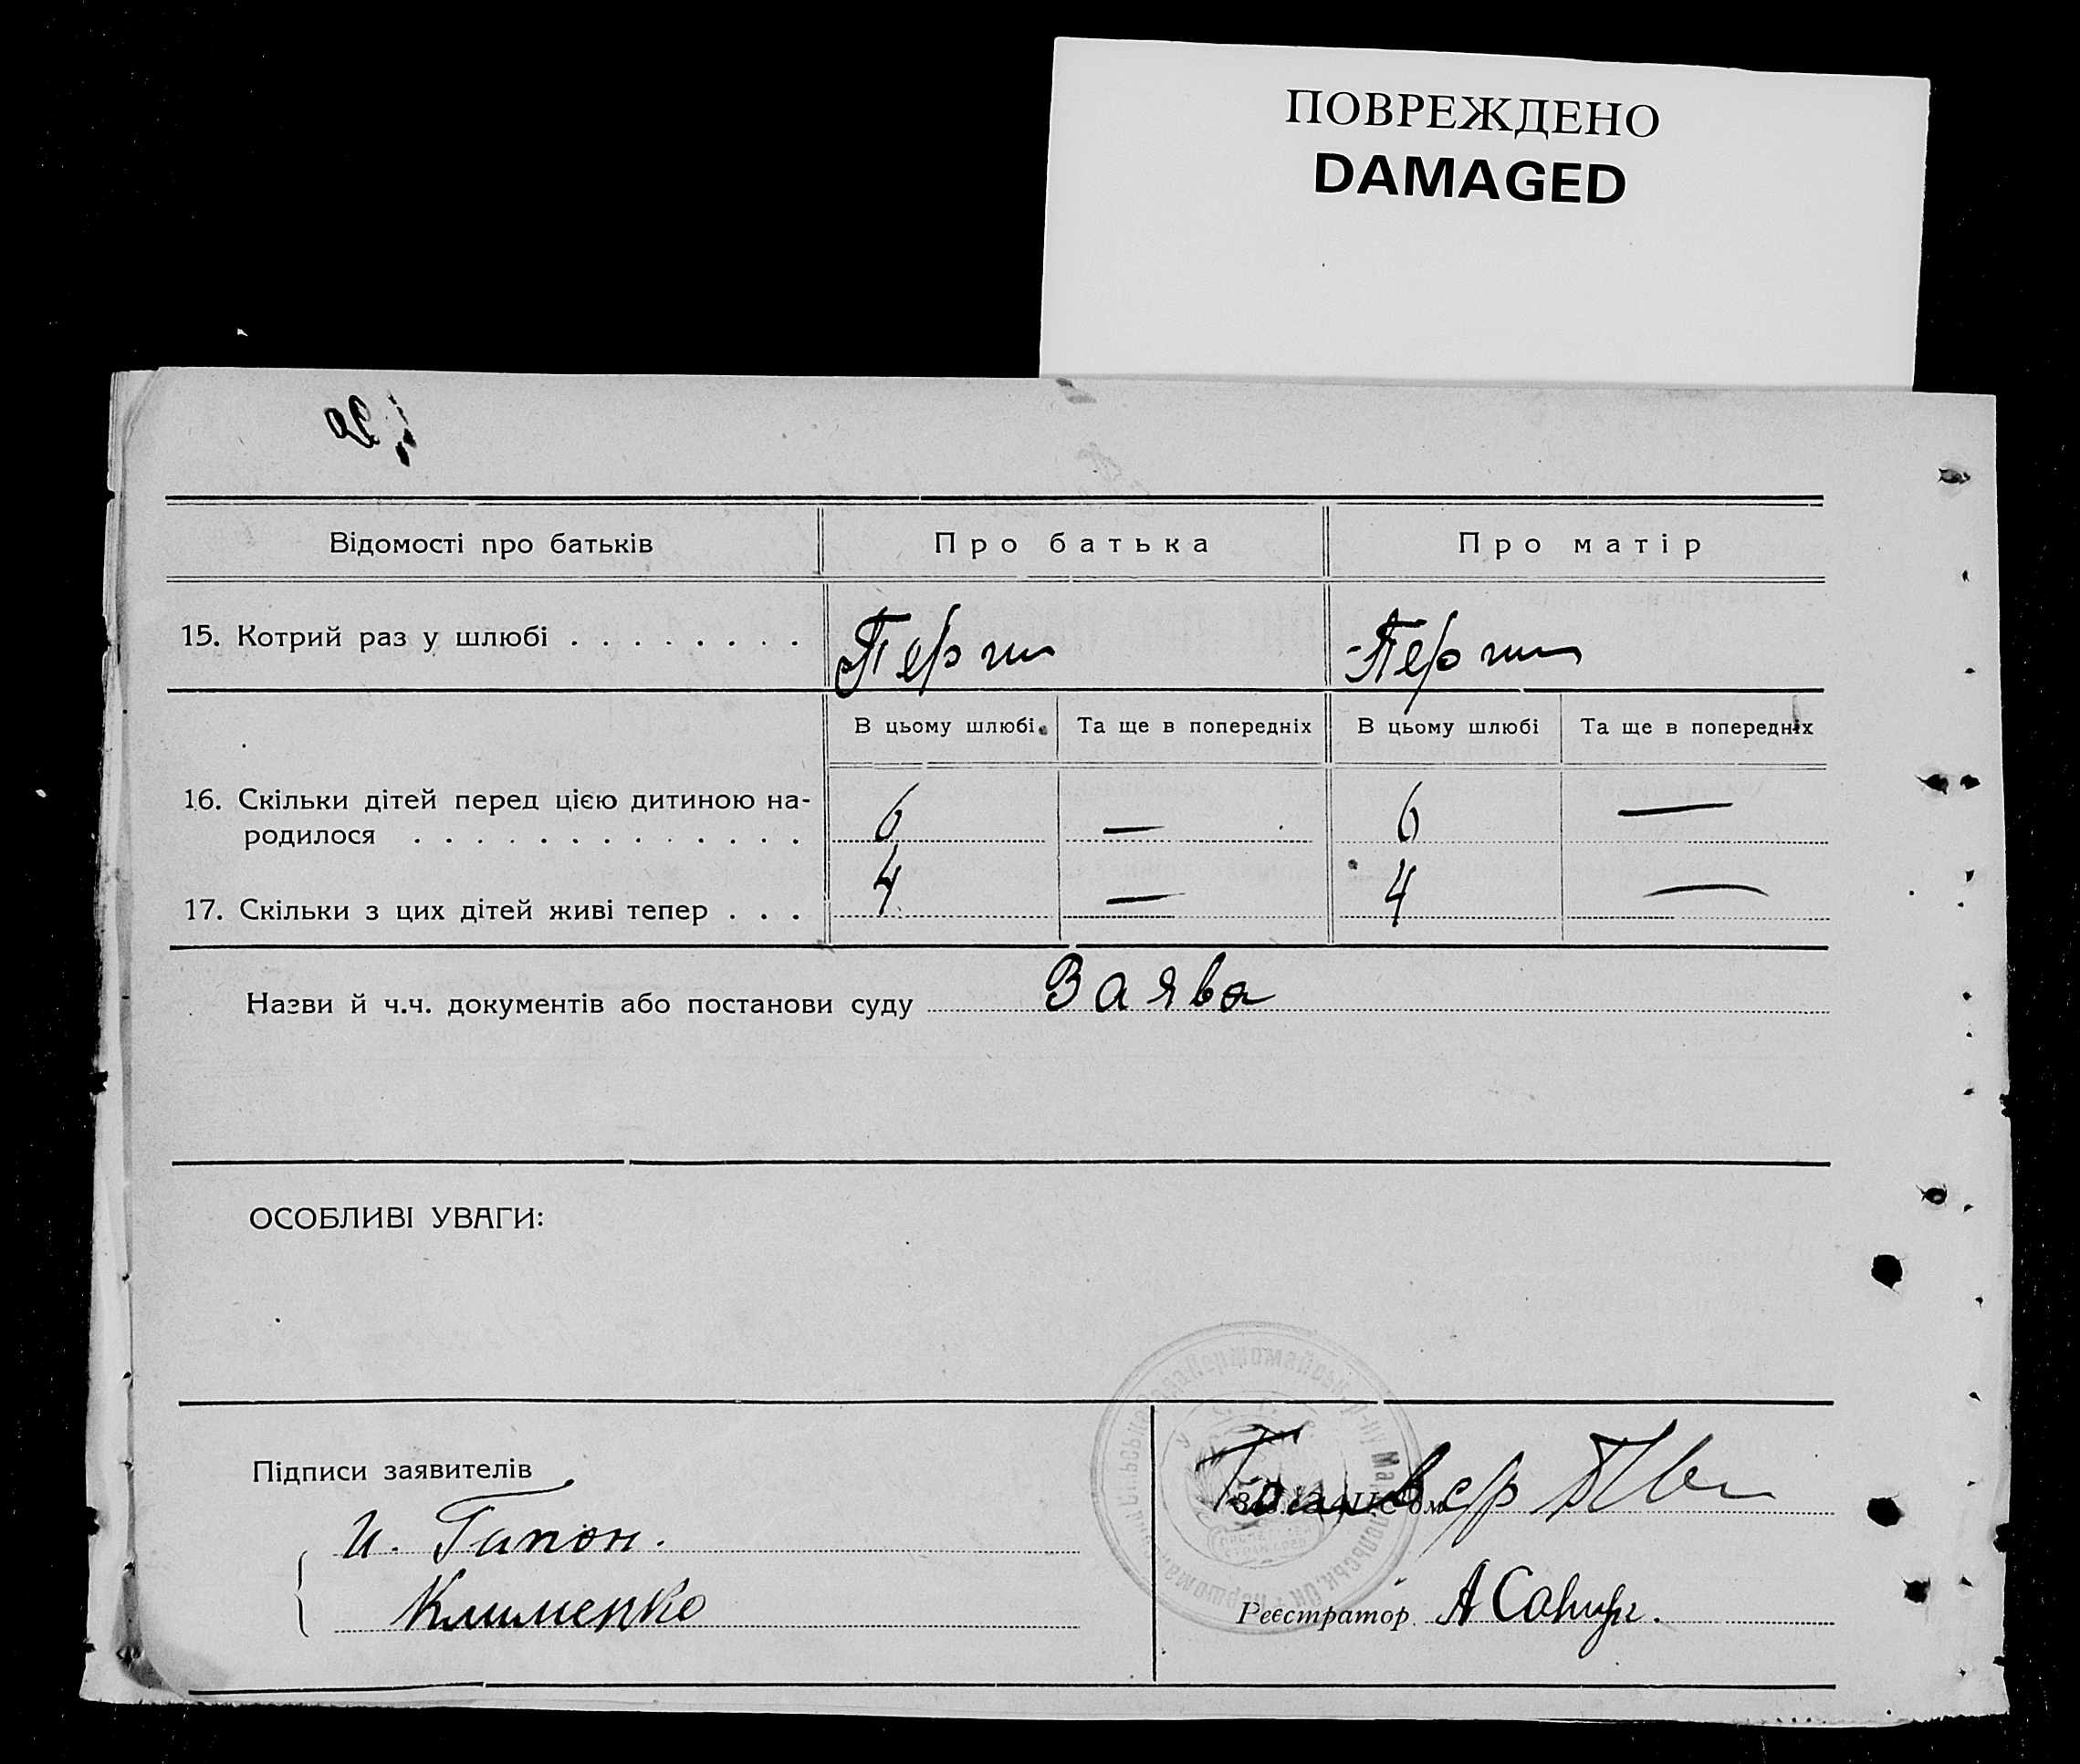 ПОВРЕЖДЕНО
DAMAGED
Відомості про батьків
Про батька
Про матір
15. Котрий раз у шлюбі . . . . . . . .
Перши
Перши
В цьому шлюбі
Та ще в попередніх
В цьому шлюбі
Та ще в попередніх
16. Скільки дітей перед цією дитиною на-
родилося . . . . . . . . . . . . .
6 — 6 —
17. Скільки з цих дітей живі тепер . . .
4 — 4 —
Назви й ч.ч. документів або постанови суду Заява
ОСОБЛИВІ УВАГИ:
Підписи заявителів
И. Гапон.
Клименко
Реєстратор А